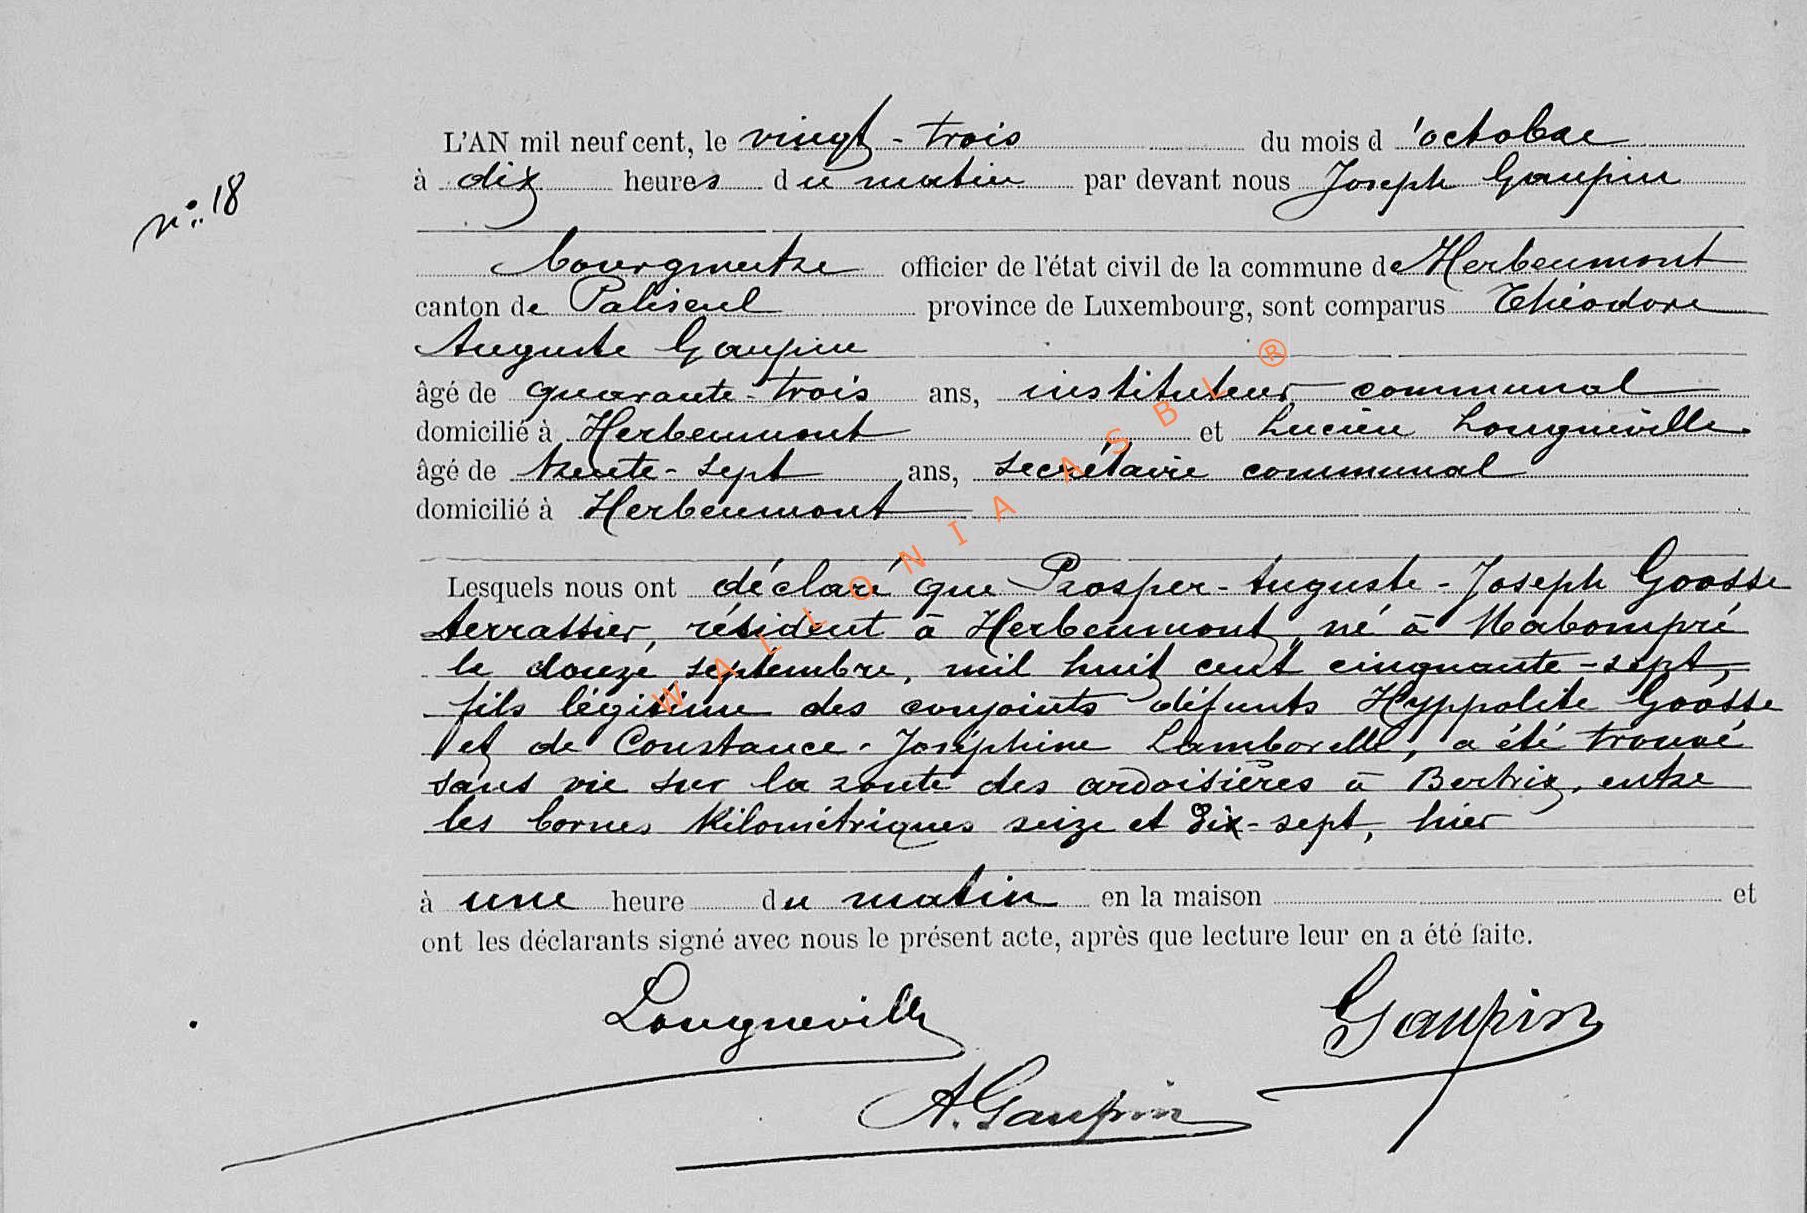 L'AN mil neuf cent, le vingt-trois du mois d'octobre
n° 18
à dix heures du matin par devant nous Joseph Gaupin
bourgmestre officier de l'état civil de la commune de Herbeumont
canton de Paliseul province de Luxembourg, sont comparus Théodore
Auguste Gaupin
âgé de quarante-trois ans, instituteur communal
domicilié à Herbeumont et Lucien Longueville
âgé de trente-sept ans, secrétaire communal
domicilié à Herbeumont
Lesquels nous ont déclaré que Prosper-Auguste-Joseph Goosse
terrassier, résident à Herbeumont, né à Mabompré
le douze septembre, mil huit cent cinquante-sept,
fils légitime des conjoints défunts Hyppolite Goosse
et de Constance-Joséphine Lamborelle, a été trouvé
sans vie sur la route des ardoisières à Bertrix, entre
les bornes kilométriques seize et dix-sept, hier
à une heure du matin en la maison et
ont les déclarants signé avec nous le présent acte, après que lecture leur en a été faite.
Longueville
Gaupin
A. Gaupin
WALLONIA ASBL ®